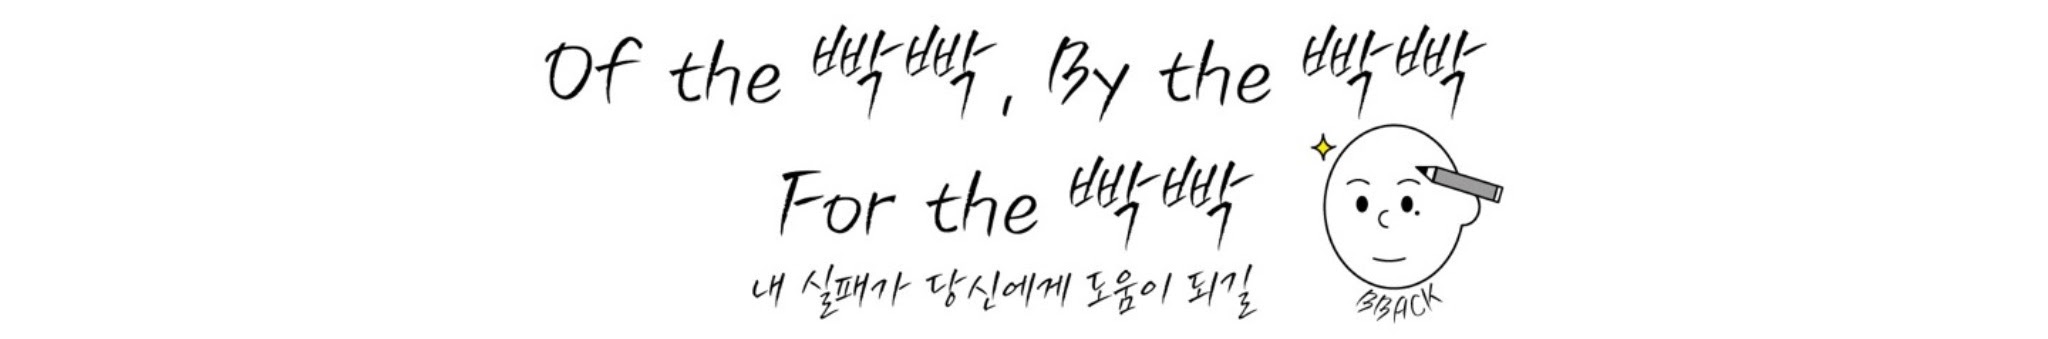 Of the 빡빡, By the 빡빡
For the 빡빡
내 실패가 당신에게 도움이 되길
BBACK